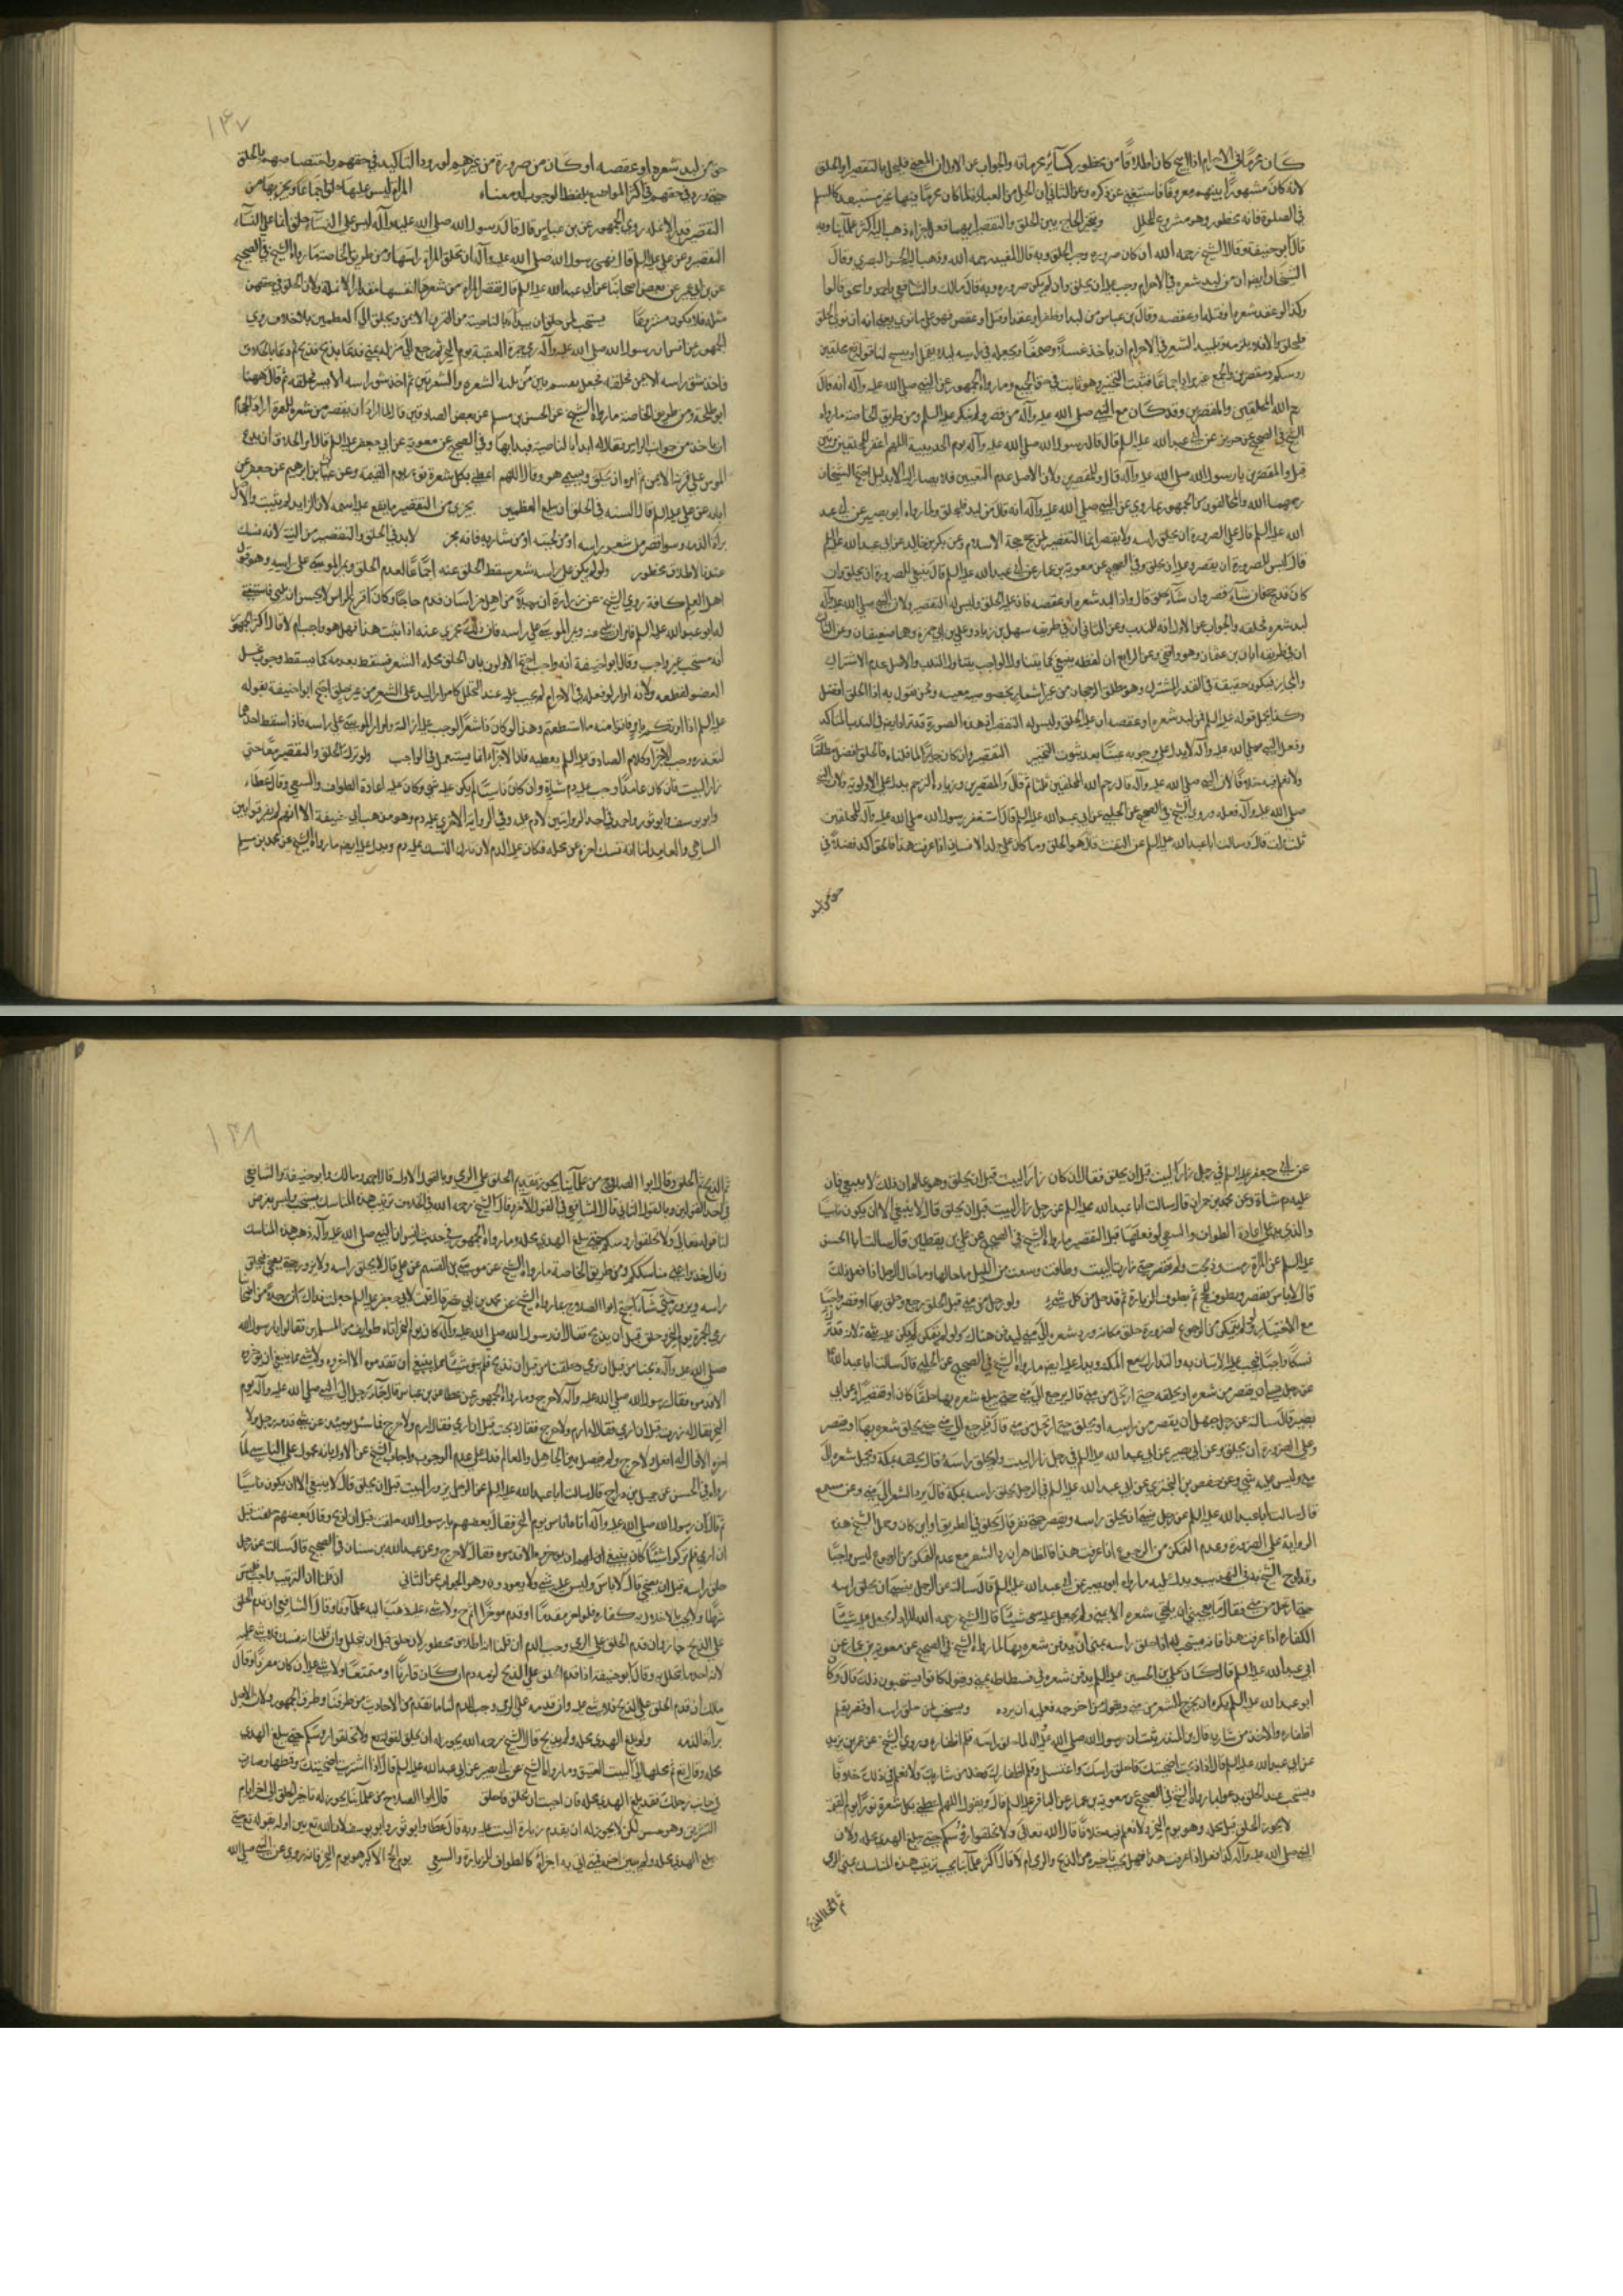 كان محرمًا في الاحرام اذا ابيح كان اطلاقًا من محظور كسائر محرماته والجواب عن الاول ان المعنى فليحل بالتقصير او الحلق
لانه كان مشهورًا بينهم معروفًا فاستغنى عن ذكره وعن الثاني ان الحل من العبادة لما كان محرمًا فيها غير مستبعد كالسلم
في الصلوة فانه محظور وهو مشروع للتحلل ويتخير الحاج بين الحلق والتقصير ايهما فعل اجزاه ذهب اليه اكثر علمآئنا وبه
قال ابو حنيفة وقال الشيخ رحمه الله ان كان صرورة وجب الحلق وبه قال المفيد رحمه الله وذهب اليه الحسن البصري وقال
الشيخان ايضا ان من لبد شعره في الاحرام وجب عليه ان يحلق وان لم يكن صرورة وبه قال مالك والشافعي واحمد واسحق قالوا
وكذا لو عقد شعره او فتله او عقصه وقال بن عباس من لبد او ظفر او عقد او فتل او عقص فهو على ما نوى يعني انه ان نوى الحلق
فليحلق والا فلا يلزمه وتلبيد الشعر في الاحرام ان ياخذ عسلاً وصمغًا ويجعله في راسه لئلا يقمل او يتسخ لنا قوله تع محلقين
روسكم ومقصرين والجمع غير مراد اجماعًا فثبت التخيير وهو ثابت في حق الجميع وما رواه الجمهور عن النبي صلى الله عليه وآله انه قال
رحم الله المحلقين والمقصرين وقد كان مع النبي صلى الله عليه وآله من قصر ولم ينكر عليه السلم ومن طريق الخاصة ما رواه
الشيخ في الصحيح عن حريز عن ابي عبد الله عليه السلم قال قال رسول الله صلى الله عليه وآله يوم الحديبية اللهم اغفر للمحلقين مرتين
قيل والمقصرين يا رسول الله صلى الله عليه وآله قال وللمقصرين ولان الاصل عدم التعيين فلا يصار اليه الا بدليل احتج الشيخان
رحمهما الله والمخالفون من الجمهور بما روي عن النبي صلى الله عليه وآله انه قال من لبد فليحلق ولما رواه ابو بصير عن ابي عبد
الله عليه السلم قال على الصرورة ان يحلق راسه ولا يقصر انما التقصير لمن حج حجة الاسلام وعن بكر بن خالد عن ابي عبد الله عليه السلم
قال ليس للصرورة ان يقصر وعليه ان يحلق وفي الصحيح عن معوية بن عمار عن ابي عبد الله عليه السلم قال ينبغي للصرورة ان يحلق وان
كان قد حج فان شاء قصر وان شاء حلق قال واذا لبد شعره او عقصه فان عليه الحلق وليس له التقصير ولان النبي صلى الله عليه وآله
لبد شعره فحلقه والجواب عن الاول انه للندب وعن الثاني ان في طريقه سهل بن زياد وعلي بن ابي حمزة وهما ضعيفان وعن الثالث
ان في طريقه ابان بن عثمان وهو واقفي وعن الرابع ان لفظه ينبغي كما يتناول الواجب يتناول الندب والاصل عدم الاشتراك
والمجاز فيكون حقيقة في القدر المشترك وهو مطلق الرجحان من غير اشعار بخصوصية معينة ونحن نقول به اذا الحلق افضل
وكذا يحمل قوله عليه السلم فمن لبد شعره او عقصه ان عليه الحلق وليس له التقصير
وفعل النبي صلى الله عليه وآله لا يدل على وجوبه عينًا بعد ثبوت التخيير التقصير وان كان جايزًا لما قلناه فالحلق افضل مطلقًا
ولا نعلم فيه خلافًا لان النبي صلى الله عليه وآله قال رحم الله المحلقين ثلثا ثم قال والمقصرين وزيادة الترحم يدل على الاولوية ولان النبي
صلى الله عليه وآله فعله وروى الشيخ في الصحيح عن الحلبي عن ابي عبد الله عليه السلم قال استغفر رسول الله صلى الله عليه وآله للمحلقين
ثلث مرات قال وسالت ابا عبد الله عليه السلم عن التفث قال هو الحلق وما كان على جلد الانسان اذا عرفت هذا فالحلق اكد فضلا في
حق من لبد
١٣٧
حق من لبد شعره او عقصه او كان من صرورة من غيرهم لورود التاكيد في حقهم واختصاصهم بالحلق
حتى ورد في حقهم في اكثر المواضع بلفظ الوجوب او معناه المراة ليس عليها حلق اجماعًا ويجزيها من
التقصير قدر الانملة روى الجمهور عن بن عباس قال قال رسول الله صلى الله عليه وآله ليس على النسآء حلق انما على النسآء
التقصير وعن علي عليه السلم قال نهى رسول الله صلى الله عليه وآله ان تحلق المراة راسها ومن طريق الخاصة ما رواه الشيخ في الصحيح
عن بن ابي عمير عن بعض اصحابنا عن ابي عبد الله عليه السلم قال تقصر المراة من شعرها لنفسها مقدار الانملة ولان الحلق في حقهن
مثلة فلا يكون مشروعًا يستحب لمن حلق ان يبدا بالناصية من القرن الايمن ويحلق الى العظمين بلا خلاف روى
الجمهور عن انس ان رسول الله صلى الله عليه وآله رمى جمرة العقبة يوم النحر ثم رجع الى منزله بمنى فدعا بذبح فذبح ثم دعا بالحلاق
فاخذ شق راسه الايمن فحلقه فجعل يقسم بين من يليه الشعرة والشعرتين ثم اخذ شق راسه الايسر فحلقه ثم قال ههنا
ابو طلحة ومن طريق الخاصة ما رواه الشيخ عن الحسن بن مسلم عن بعض الصادقين قال لما اراد ان يقصر من شعره للعمرة اراد الحجام
ان ياخذ من جوانب الراس فقال له ابدا بالناصية فبدا بها وفي الصحيح عن معوية عن ابي جعفر عليه السلم قال امر الحلاق ان يضع
الموسى على قرنه الايمن ثم امره ان يحلق ويسمي هو وقال اللهم اعطني بكل شعرة نورًا يوم القيمة وعن غياث بن ابراهيم عن جعفر عن
ابايه عن علي عليه السلم قال السنة في الحلق ان يبلغ العظمين يجزي من التقصير ما يقع عليه اسمه لان الزايد لم يثبت والاصل
براة الذمة وسوا قصر من شعر راسه او من لحيته او من شاربه فانه يجز لا بد في الحلق والتقصير من النية لانه نسك
عندنا لا اطلاق محظور ولو لم يكن على راسه شعر سقط الحلق عنه اجماعًا لعدم الحلق ويمر الموسى على راسه وهو قول
اهل العلم كافة روى الشيخ عن زرارة ان رجلاً من اهل خراسان قدم حاجًا وكان اقرع الراس لا يحسن ان يلبي فاستفتي
له ابو عبد الله عليه السلم فامر ان يلبى عنه ويمر الموسى على راسه فان ذلك يجزي عنه اذا ثبت هذا فهل هو واجب ام لا قال اكثر الجمهور
انه مستحب غير واجب وقال ابو حنيفة انه واجب احتج الاولون بان الحلق محله الشعر فسقط بعدمه كما يسقط وجوب غسل
العضو لقطعه ولانه امرار لو فعله في الاحرام لم يجب عليه عند التحلل كامرار اليد على الشعر من غير حلق احتج ابو حنيفة بقوله
عليه السلم اذا امرتكم بامر فاتوا منه ما استطعتم وهذا لو كان ذا شعر لوجب عليه ازالته وامرار الموسى على راسه فاذا سقط احدهما
لتعذره وجب الاخر وكلام الصادق عليه السلم يعطيه فان الاجزآء انما يستعمل في الواجب ولو ترك الحلق والتقصير معًا حتى
زار البيت فان كان عامدًا وجب عليه دم شاة وان كان ناسيًا لم يكن عليه شي وكان عليه اعادة الطواف والسعي وقال عطاء
وابو يوسف وابو ثور واحمد في احد الروايتين لا دم عليه وفي الرواية الاخرى عليه دم وهو مذهب ابي حنيفة الا انهم لم يفرقوا بين
الساهي والعامد لنا انه نسك اخره عن محله فكان عليه الدم لان تارك النسك عليه دم ويدل عليه ايضا ما رواه الشيخ عن محمد بن مسلم
عن ابي جعفر عليه السلم في رجل زار البيت قبل ان يحلق فقال ان كان زار البيت قبل ان يحلق وهو عالم ان ذلك لا ينبغي فان
عليه دم شاة وعن محمد بن حمران قال سالت ابا عبد الله عليه السلم عن رجل زار البيت قبل ان يحلق قال لا ينبغي الا ان يكون ناسيًا
والذي يدل على اعادة الطواف والسعي لو فعلها قبل التقصير ما رواه الشيخ في الصحيح عن علي بن يقطين قال سالت ابا الحسن
عليه السلم عن المراة رمت وذبحت ولم تقصر حتى زارت البيت وطافت وسعت من الليل ما حالها وما حال الرجل اذا فعل ذلك
قال لا باس يقصر ويطوف للحج ثم يطوف للزيارة ثم قد حل من كل شيء ولو رحل من منى قبل الحلق رجع وحلق بها او قصر واجبًا
مع الاختيار ولو لم يتمكن من الرجوع لضرورة حلق مكانه ورد شعره الى منى ليدفن هناك ولو لم يتمكن لم يكن عليه شي لانه قد ترك
نسكًا واجبًا فيجب عليه الاتيان به والتدارك مع المكنة ويدل عليه ايضا ما رواه الشيخ في الصحيح عن الحلبي قال سالت ابا عبد الله
عن رجل نسي ان يقصر من شعره او يحلقه حتى ارتحل من منى قال يرجع الى منى حتى يلقي شعره بها حلقًا كان او تقصيرًا وعن ابي
بصير قال سالته عن رجل جهل ان يقصر من راسه او يحلق حتى ارتحل من منى قال فليرجع الى منى حتى يحلق شعره بها او يقصر
وعلى الصرورة ان يحلق وعن ابي بصير عن ابي عبد الله عليه السلم في رجل زار البيت ولم يحلق راسه قال يحلقه بمكة ويحمل شعره الى
منى وليس عليه شي وعن حفص بن البختري عن ابي عبد الله عليه السلم في الرجل يحلق راسه بمكة قال يرد الشعر الى منى وعن مسمع
قال سالت ابا عبد الله عليه السلم عن رجل نسي ان يحلق راسه ويقصر حتى نفر قال يحلق في الطريق او اين كان وحمل الشيخ هذه
الرواية على الضرورة وعدم التمكن من الرجوع اذا عرفت هذا فالظاهر ان رد الشعر مع عدم التمكن من الرجوع ليس واجبًا
وقد صرح الشيخ به في التهذيب ويدل عليه ما رواه ابو بصير عن ابي عبد الله عليه السلم قال سالته عن الرجل ينسى ان يحلق راسه
حتى ارتحل من منى فقال ما يعجبني ان يلقي شعره الا بمنى ولم يجعل عليه شيئًا قال الشيخ رحمه الله المراد لم يجعل عليه شيئًا
الكفارة اذا عرفت هذا فانه يستحب له اذا حلق راسه بمنى ان يدفن شعره بها لما رواه الشيخ في الصحيح عن معوية بن عمار عن
ابي عبد الله عليه السلم قال كان علي بن الحسين عليه السلم يدفن شعره في فسطاطه بمنى ويقول كانوا يستحبون ذلك قال وكان
ابو عبد الله عليه السلم يكره ان يخرج الشعر من منى ويقول من اخرجه فعليه ان يرده ويستحب لمن حلق راسه او قصر يقلم
اظفاره والاخذ من شاربه قال بن المنذر ثبت ان رسول الله صلى الله عليه وآله لما حلق راسه قلم اظفاره وروى الشيخ عن عمر بن يزيد
عن ابي عبد الله عليه السلم قال اذا ذبحت اضحيتك فاحلق راسك واغتسل وقلم اظفارك وخذ من شاربك ولا نعلم في ذلك خلافًا
ويستحب عند الحلق يدعو لما رواه الشيخ في الصحيح عن معوية بن عمار عن الباقر عليه السلم قال ويقول اللهم اعطني بكل شعرة نورًا يوم القيمة
لا يجوز الحلق قبل محله وهو يوم النحر ولا نعلم فيه خلافًا قال الله تعالى ولا تحلقوا رؤسكم حتى يبلغ الهدي محله ولان
النبي صلى الله عليه وآله كذا فعل اذا عرفت هذا فهل يجب تاخيره عن الذبح والرمي ام لا قال اكثر علمآئنا يجب ترتيب هذه المناسك بمنى الرمي
ثم الذبح
١٣٨
ثم الذبح ثم الحلق وقال ابو الصلاح من علمآئنا يجوز تقديم الحلق على الرمي وبالقول الاول قال احمد ومالك وابو حنيفة والشافعي
في احد القولين وبالقول الثاني قال الشافعي في القول الاخر وقال الشيخ رحمه الله في الخلاف ترتيب هذه المناسك مستحب وليس بفرض
لنا قوله تعالى ولا تحلقوا روسكم حتى يبلغ الهدي محله وما رواه الجمهور في حديث انس ان النبي صلى الله عليه وآله رتب هذه المناسك
وقال خذوا عني مناسككم ومن طريق الخاصة ما رواه الشيخ عن موسى بن القسم عن علي قال لا يحلق راسه ولا يزور حتى يضحي فيحلق
راسه ويزور متى شآء احتج ابو الصلاح بما رواه الشيخ عن محمد بن ابي نصر قال قلت لابي جعفر عليه السلم جعلت فداك ان رجلاً من اصحابنا
رمى الجمرة يوم النحر وحلق قبل ان يذبح فقال ان رسول الله صلى الله عليه وآله كان يوم النحر اتاه طوايف من المسلمين فقالوا يا رسول الله
صلى الله عليه وآله ذبحنا من قبل ان نرمي وحلقنا من قبل ان نذبح فلم يبق شيئًا مما ينبغي ان تقدموه الا اخروه ولا شي مما ينبغي ان يؤخروه
الا قدموه فقال رسول الله صلى الله عليه وآله لا حرج وما رواه الجمهور عن عطا عن بن عباس قال جآء رجل الى النبي صلى الله عليه وآله يوم
النحر فقال له زرت قبل ان ارمي فقال له ارم ولا حرج فقال ذبحت قبل ان ارمي فقال ارم ولا حرج فما سئل يومئذ عن شي قدمه رجل ولا
اخره الا قال له افعل ولا حرج ولم يفصل بين الجاهل والعالم فدل على عدم الوجوب واجاب الشيخ عن الاول بانه محمول على الناسي لما
رواه في الحسن عن جميل بن دراج قال سالت ابا عبد الله عليه السلم عن الرجل يزور البيت قبل ان يحلق قال لا ينبغي الا ان يكون ناسيًا
ثم قال ان رسول الله صلى الله عليه وآله اتاه اناس يوم النحر فقال بعضهم يا رسول الله حلقت قبل ان اذبح وقال بعضهم حلقت قبل
ان ارمي فلم يتركوا شيئًا كان ينبغي لهم ان يؤخروه الا قدموه فقال لا حرج وعن عبد الله بن سنان في الصحيح قال سالت عن رجل
حلق راسه قبل ان يضحي قال لا باس وليس عليه شي ولا يعودون وهو الجواب عن الثاني اذا قلنا ان الترتيب واجب ليس
شرطًا ولا يجب بالاخلال به كفارة فلو اخر مقدمًا او قدم مؤخرًا اثم ولا شيء عليه ذهب اليه علمآؤنا وقال الشافعي ان قدم الحلق
على الذبح جاز وان قدم الحلق على الرمي وجب الدم ان قلنا انه اطلاق محظور لانه حلق قبل ان يتحلل وان قلنا انه نسك فلا شي عليه
لانه احد ما يتحلل به وقال ابو حنيفة اذا قدم الحلق على الذبح لزمه دم ان كان قارنًا او متمتعًا ولا شي عليه ان كان مفردًا وقال
ملك ان قدم الحلق على الذبح فلا شي عليه وان قدمه على الرمي وجب الدم لنا ما تقدم من الاحاديث من طرقنا وطرق الجمهور ولان الاصل
برآءة الذمة ولو بلغ الهدي محله ولم يذبح قال الشيخ رحمه الله يجوز له ان يحلق لقوله تع ولا تحلقوا روسكم حتى يبلغ الهدي
محله وقال تع ثم محلها الى البيت العتيق وما رواه الشيخ عن ابي بصير عن ابي عبد الله عليه السلم قال اذا اشتريت اضحيتك وقمطتها وصارت
في جانب رحلك فقد بلغ الهدي محله فان احببت ان تحلق فاحلق قال ابو الصلاح من علمآئنا يجوز له تاخير الحلق الى اخر ايام
التشريق وهو حسن لكن لا يجوز له ان يقدم زيارة البيت عليه وبه قال عطا وابو ثور وابو يوسف لان الله تع بين اوله بقوله تع حتى
يبلغ الهدي محله ولم يبين اخره فمتى اتى به اجزاه كالطواف للزيارة والسعي يوم الحج الاكبر هو يوم النحر فانه روي عن النبي صلى الله